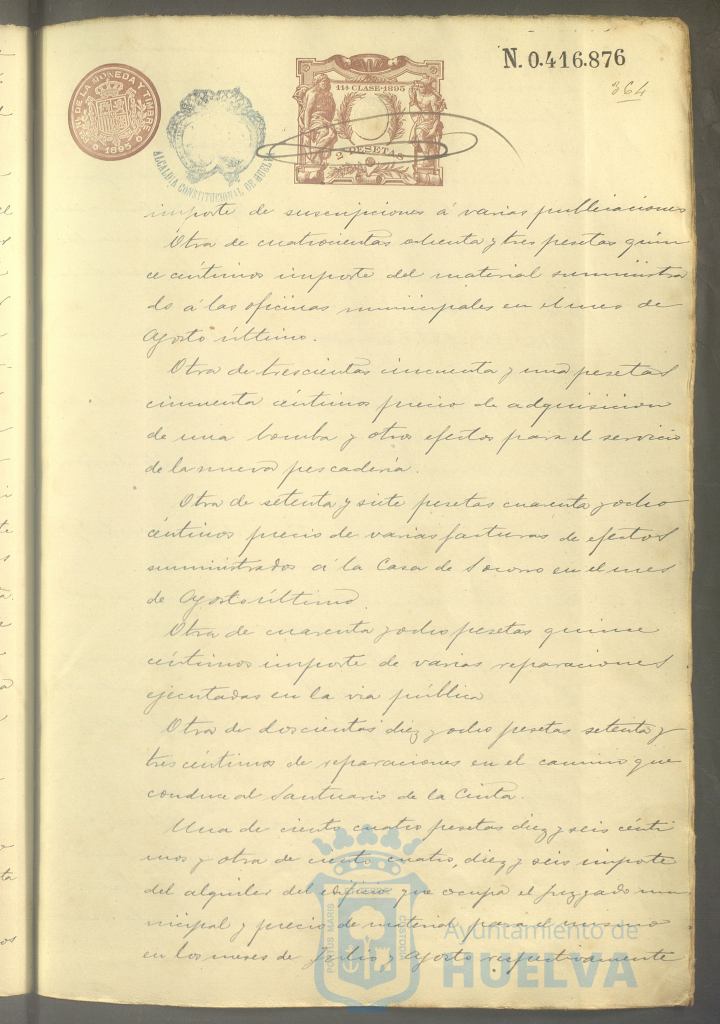 N. 0.416.876
364
FCA. DE LA MONEDA Y TIMBRE
1895
11ª CLASE-1895
2 PESETAS
ALCALDIA CONSTITUCIONAL DE HUELVA
importe de suscripciones á varias publicaciones
Otra de cuatrocientas ochenta y tres pesetas quin
ce céntimos importe del material suministra
do á las oficinas municipales en el mes de
Agosto último.
Otra de trescientas cincuenta y una pesetas
cincuenta céntimos precio de adquisicion
de una bomba y otros efectos para el servicio
de la nueva pescadería.
Otra de setenta y siete pesetas cuarenta y ocho
céntimos precio de varias facturas de efectos
suministrados á la Casa de Socorro en el mes
de Agosto último.
Otra de cuarenta y ocho pesetas quince
céntimos importe de varias reparaciones
ejecutadas en la via pública
Otra de doscientas diez y ocho pesetas setenta y
tres céntimos de reparaciones en el camino que
conduce al Santuario de la Cinta.
Una de ciento cuatro pesetas diez y seis cénti
mos y otra de ciento cuatro, diez y seis importe
del alquiler del edificio que ocupa el Juzgado mu
nicipal y precio de material para el mismo
en los meses de Julio y Agosto respectivamente
PORTUS MARIS
CUSTODIA
Ayuntamiento de
HUELVA